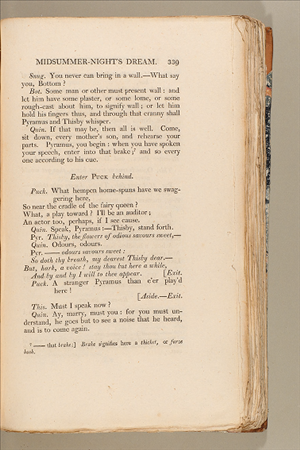 MIDSUMMER-NIGHT'S DREAM. 339
Snug. You never can bring in a wall.—What say
you, Bottom?
Bot. Some man or other must present wall: and
let him have some plaster, or some lome, or some
rough-cast about him, to signify wall; or let him
hold his fingers thus, and through that cranny shall
Pyramus and Thisby whisper.
Quin. If that may be, then all is well. Come,
sit down, every mother's son, and rehearse your
parts. Pyramus, you begin: when you have spoken
your speech, enter into that brake; and so every
one according to his cue.
Enter PUCK behind.
Puck. What hempen home-spuns have we swag-
gering here,
So near the cradle of the fairy queen?
What, a play toward? I'll be an auditor;
An actor too, perhaps, if I see cause.
Quin. Speak, Pyramus:—Thisby, stand forth.
Pyr. Thisby, the flowers of odious savours sweet,—
Quin. Odours, odours.
Pyr. —— odours savours sweet:
So doth thy breath, my dearest Thisby dear.—
But, hark, a voice! stay thou but here a while,
And by and by I will to thee appear. [Exit.
Puck. A stranger Pyramus than e'er play'd
here! [Aside.—Exit.
This. Must I speak now?
Quin. Ay, marry, must you: for you must un-
derstand, he goes but to see a noise that he heard,
and is to come again.
—— that brake;] Brake signifies here a thicket, or furze
bush.